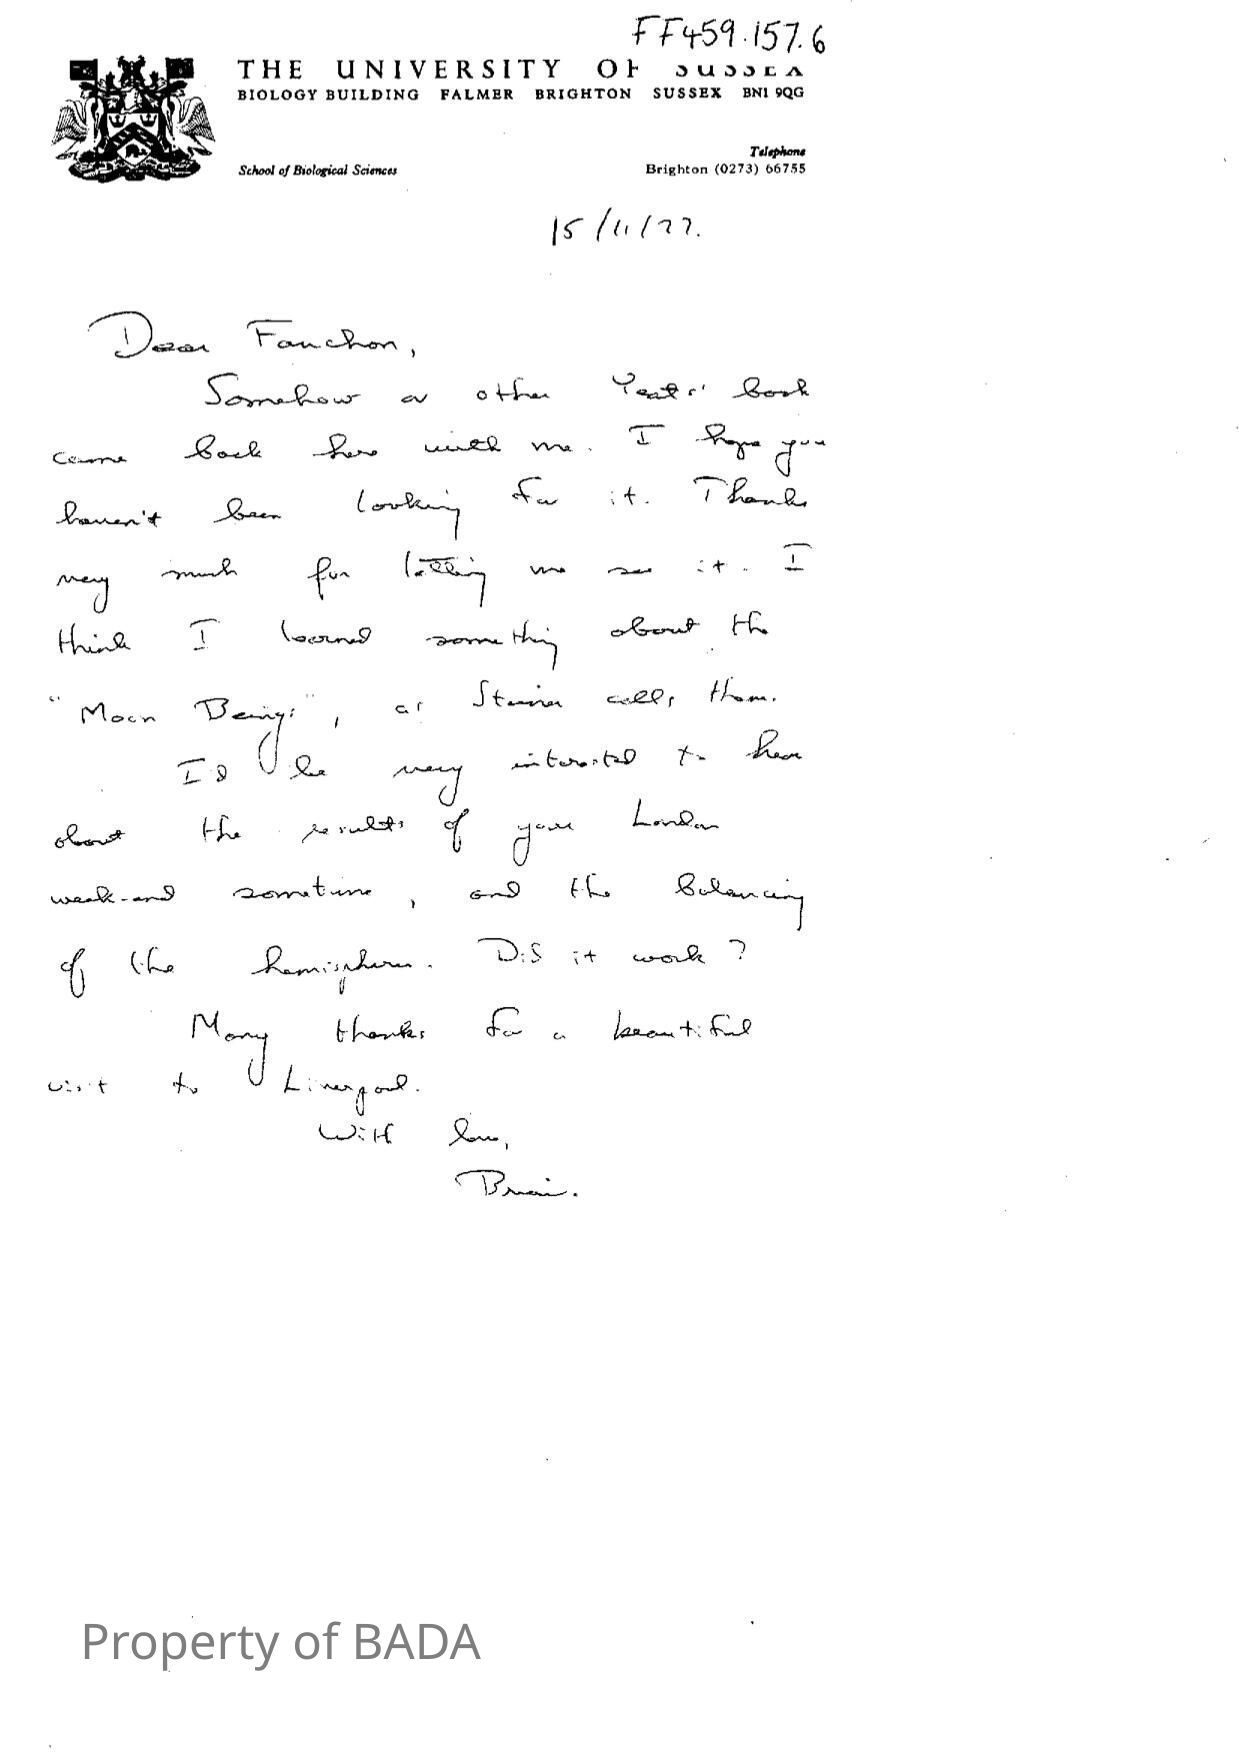 FF459.157.6
THE UNIVERSITY OF SUSSEX
BIOLOGY BUILDING FALMER BRIGHTON SUSSEX BN1 9QG
Telephone
School of Biological Sciences Brighton (0273) 66755
15/11/77.
Dear Fanchon,
Somehow or other Yeats' book
came back here with me. I hope you
haven't been looking for it. Thanks
very much for letting me see it. I
think I learned something about the
"Moon Beings", as Steiner calls them.
I'd be very interested to hear
about the results of your London
week-end sometime, and the balancing
of the hemispheres. Did it work?
Many thanks for a beautiful
visit to Liverpool.
With love,
Brian.
Property of BADA